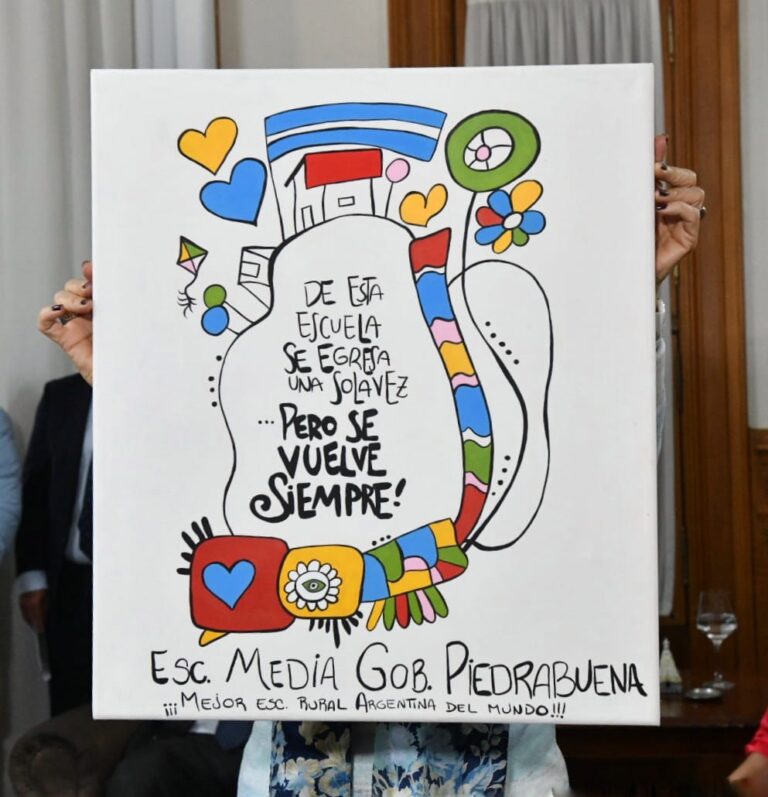 DE ESTA
ESCUELA
SE EGRESA
UNA SOLA VEZ
...PERO SE
VUELVE
SIEMPRE!
ESC. MEDIA GOB. PIEDRABUENA
¡¡¡MEJOR ESC. RURAL ARGENTINA DEL MUNDO!!!